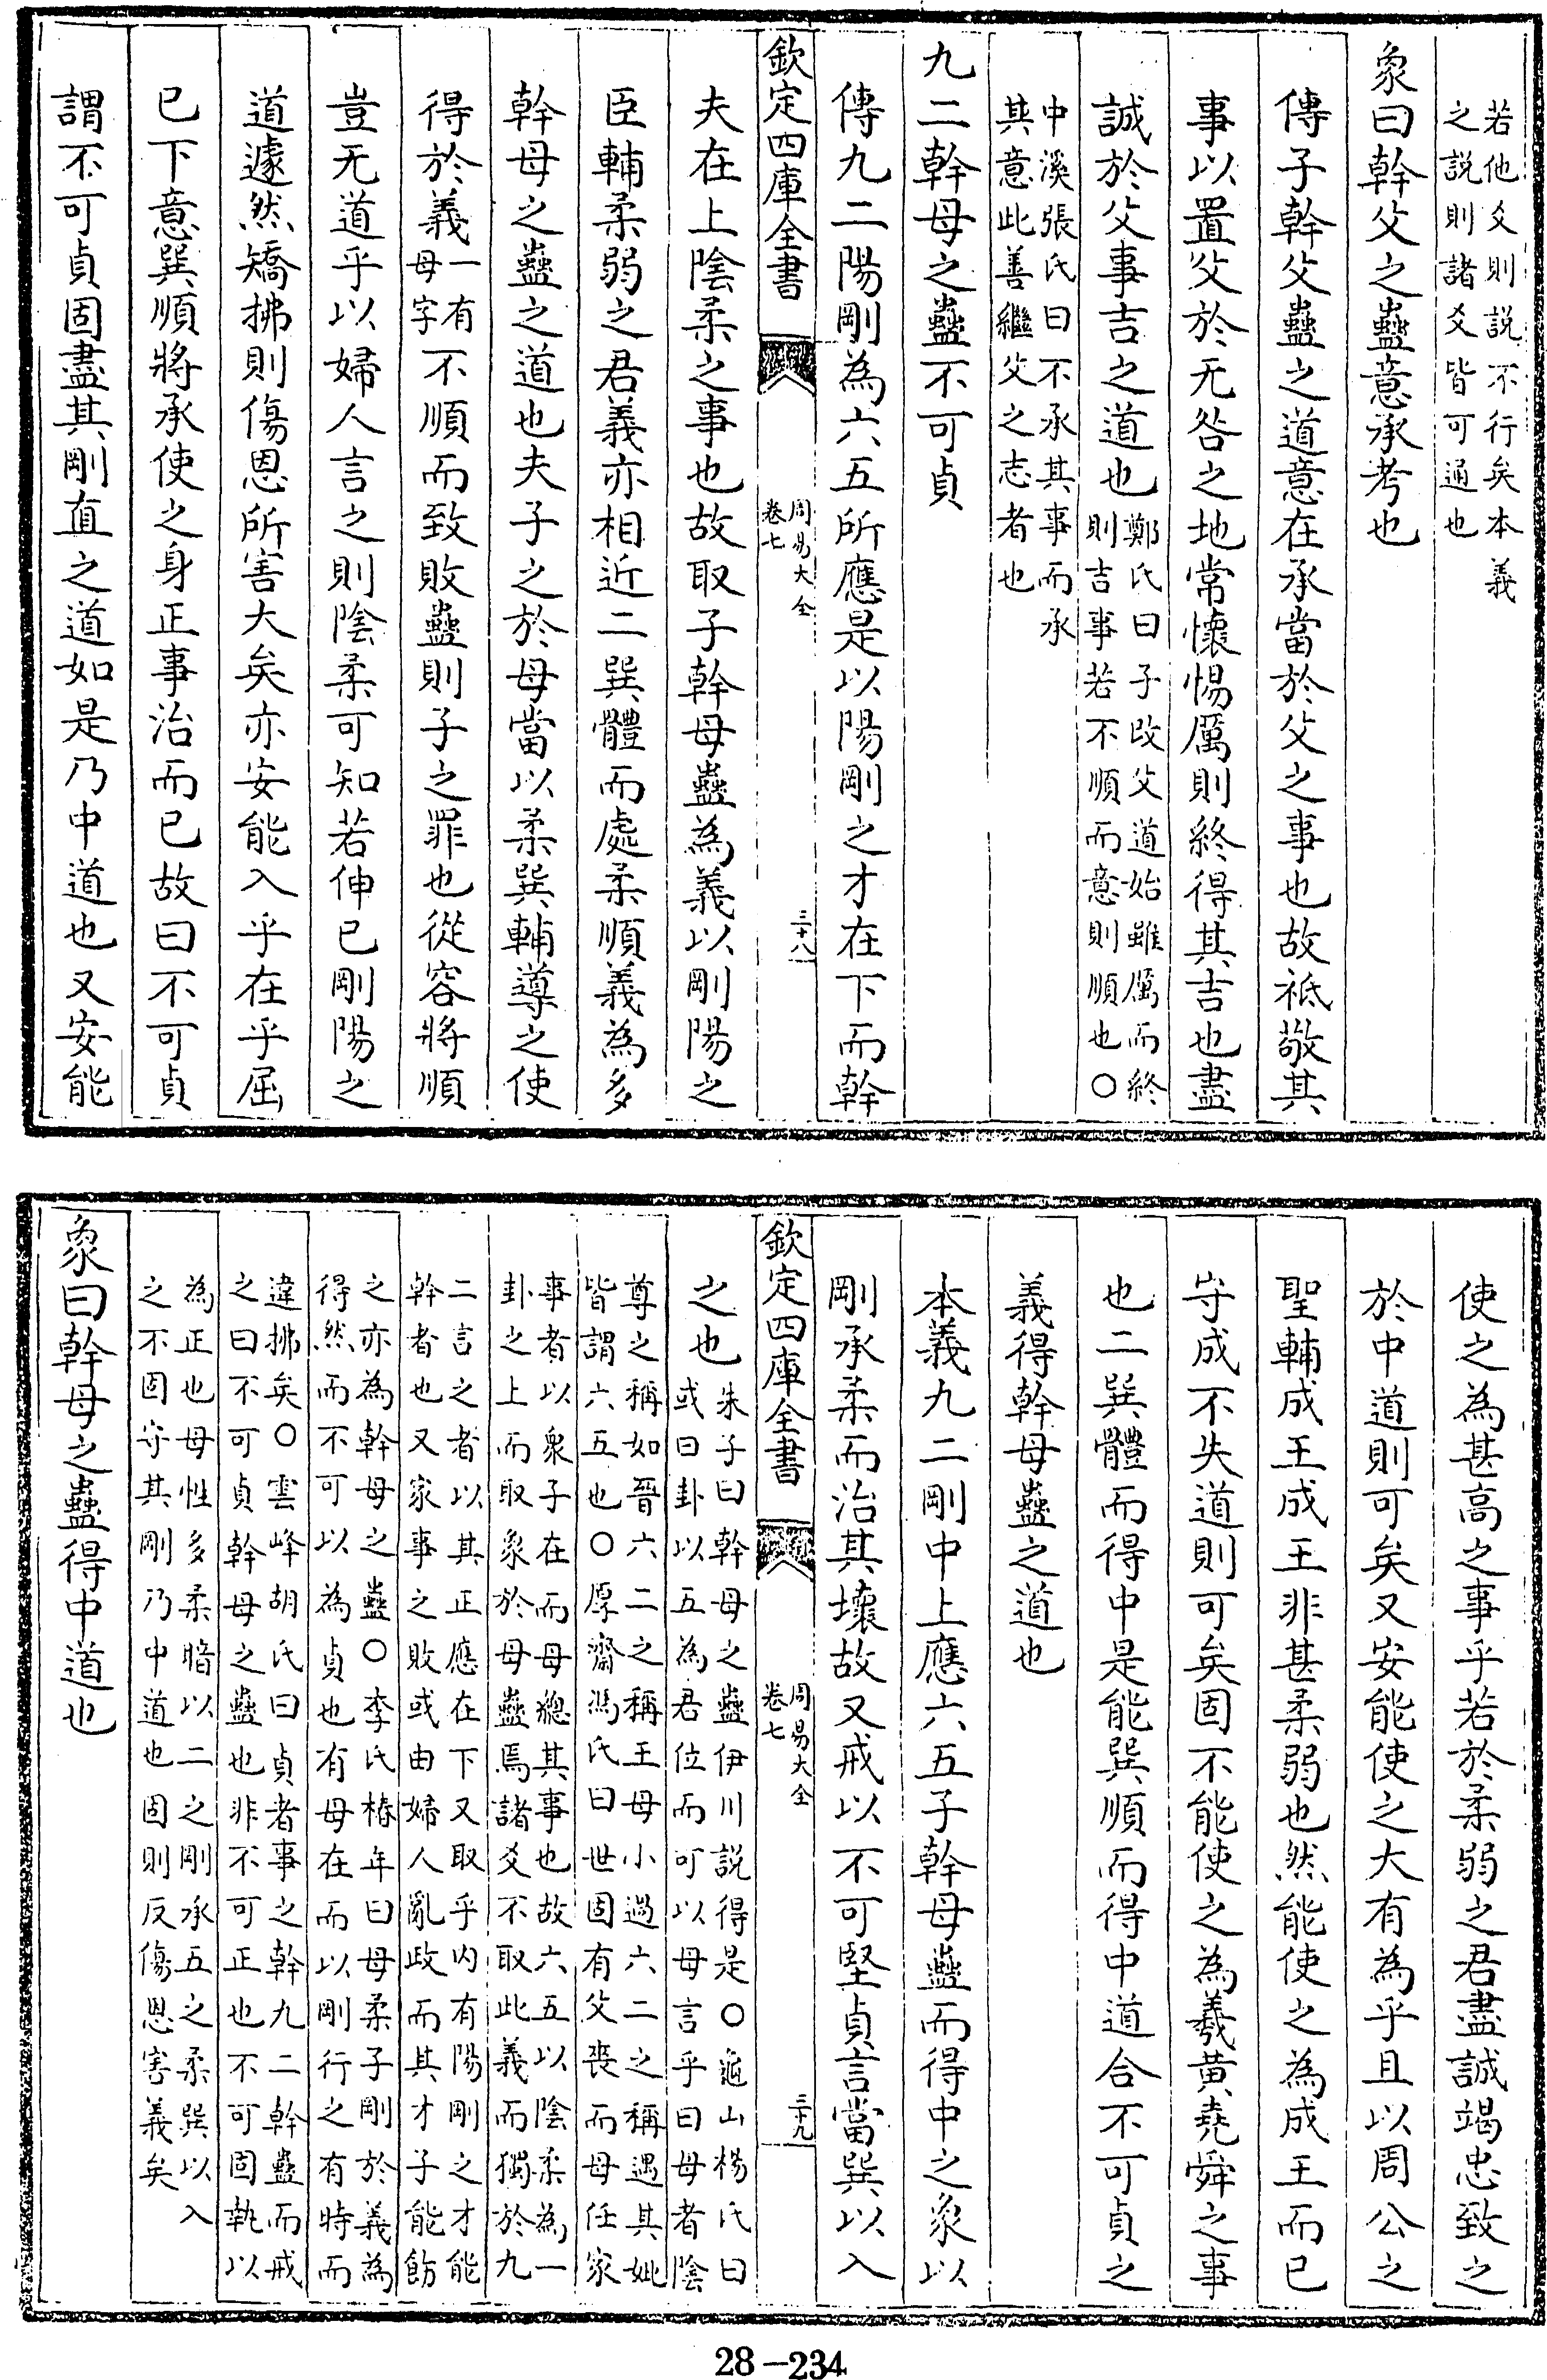 若他爻則説不行矣本義
之説則諸爻皆可通也
象曰幹父之蠱意承考也
傳子幹父蠱之道意在承當於父之事也故祗敬其
事以置父於无咎之地常懷惕厲則終得其吉也盡
誠於父事吉之道也
鄭氏曰子改父道始雖厲而終
則吉事若不順而意則順也○
中溪張氏曰不承其事而承
其意此善繼父之志者也
九二幹母之蠱不可貞
傳九二陽剛為六五所應是以陽剛之才在下而幹
欽定四庫全書
周易大全
卷七
三十八
夫在上陰柔之事也故取子幹母蠱為義以剛陽之
臣輔柔弱之君義亦相近二巽體而處柔順義為多
幹母之蠱之道也夫子之於母當以柔巽輔導之使
得於義
一有
母字
不順而致敗蠱則子之罪也從容將順
豈无道乎以婦人言之則陰柔可知若伸已剛陽之
道遽然矯拂則傷恩所害大矣亦安能入乎在乎屈
已下意巽順將承使之身正事治而已故曰不可貞
謂不可貞固盡其剛直之道如是乃中道也又安能
使之為甚高之事乎若於柔弱之君盡誠竭忠致之
於中道則可矣又安能使之大有為乎且以周公之
聖輔成王成王非甚柔弱也然能使之為成王而已
守成不失道則可矣固不能使之為羲黄堯舜之事
也二巽體而得中是能巽順而得中道合不可貞之
義得幹母蠱之道也
本義九二剛中上應六五子幹母蠱而得中之象以
剛承柔而治其壞故又戒以不可堅貞言當巽以入
欽定四庫全書
周易大全
卷七
三十九
之也
朱子曰幹母之蠱伊川説得是○龜山楊氏曰
或曰卦以五為君位而可以母言乎曰母者陰
尊之稱如晉六二之稱王母小過六二之稱遇其妣
皆謂六五也○厚齋馮氏曰世固有父喪而母任家
事者以衆子在而母總其事也故六五以陰柔為一
卦之上而取象於母蠱焉諸爻不取此義而獨於九
二言之者以其正應在下又取乎内有陽剛之才能
幹者也又家事之敗或由婦人亂政而其才子能飭
之亦為幹母之蠱○李氏椿年曰母柔子剛於義為
得然而不可以為貞也有母在而以剛行之有時而
違拂矣○雲峰胡氏曰貞者事之幹九二幹蠱而戒
之曰不可貞幹母之蠱也非不可正也不可固執以
為正也母性多柔暗以二之剛承五之柔巽以入
之不固守其剛乃中道也固則反傷恩害義矣
象曰幹母之蠱得中道也
28-234